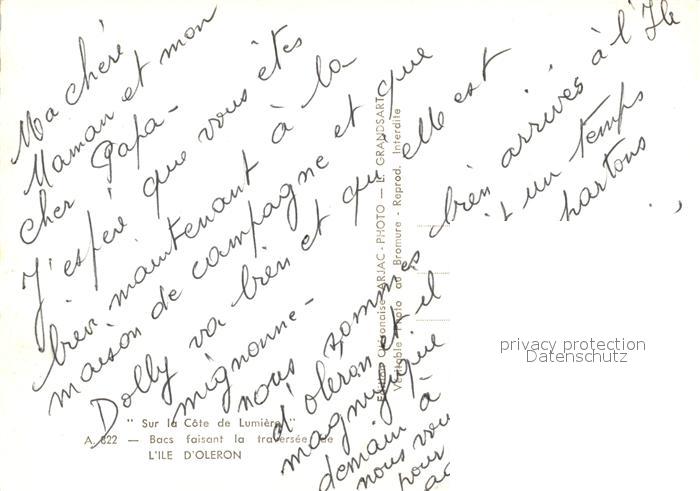 Ma chère
Maman et mon
cher Papa-
J'espère que vous êtes
bien maintenant à la
maison de campagne et que
Dolly va bien et qu'elle est
mignonne-
nous sommes bien arrivés à l'Ile
d'oleron et il un temps
magnifique partons
demain à
nous vou
pour
" Sur la Côte de Lumière "
A. 822 — Bacs faisant la traversée de
L'ILE D'OLERON
ARJAC - PHOTO — L. GRANDSART
Véritable Photo au Bromure - Reprod. Interdite
privacy protection
Datenschutz